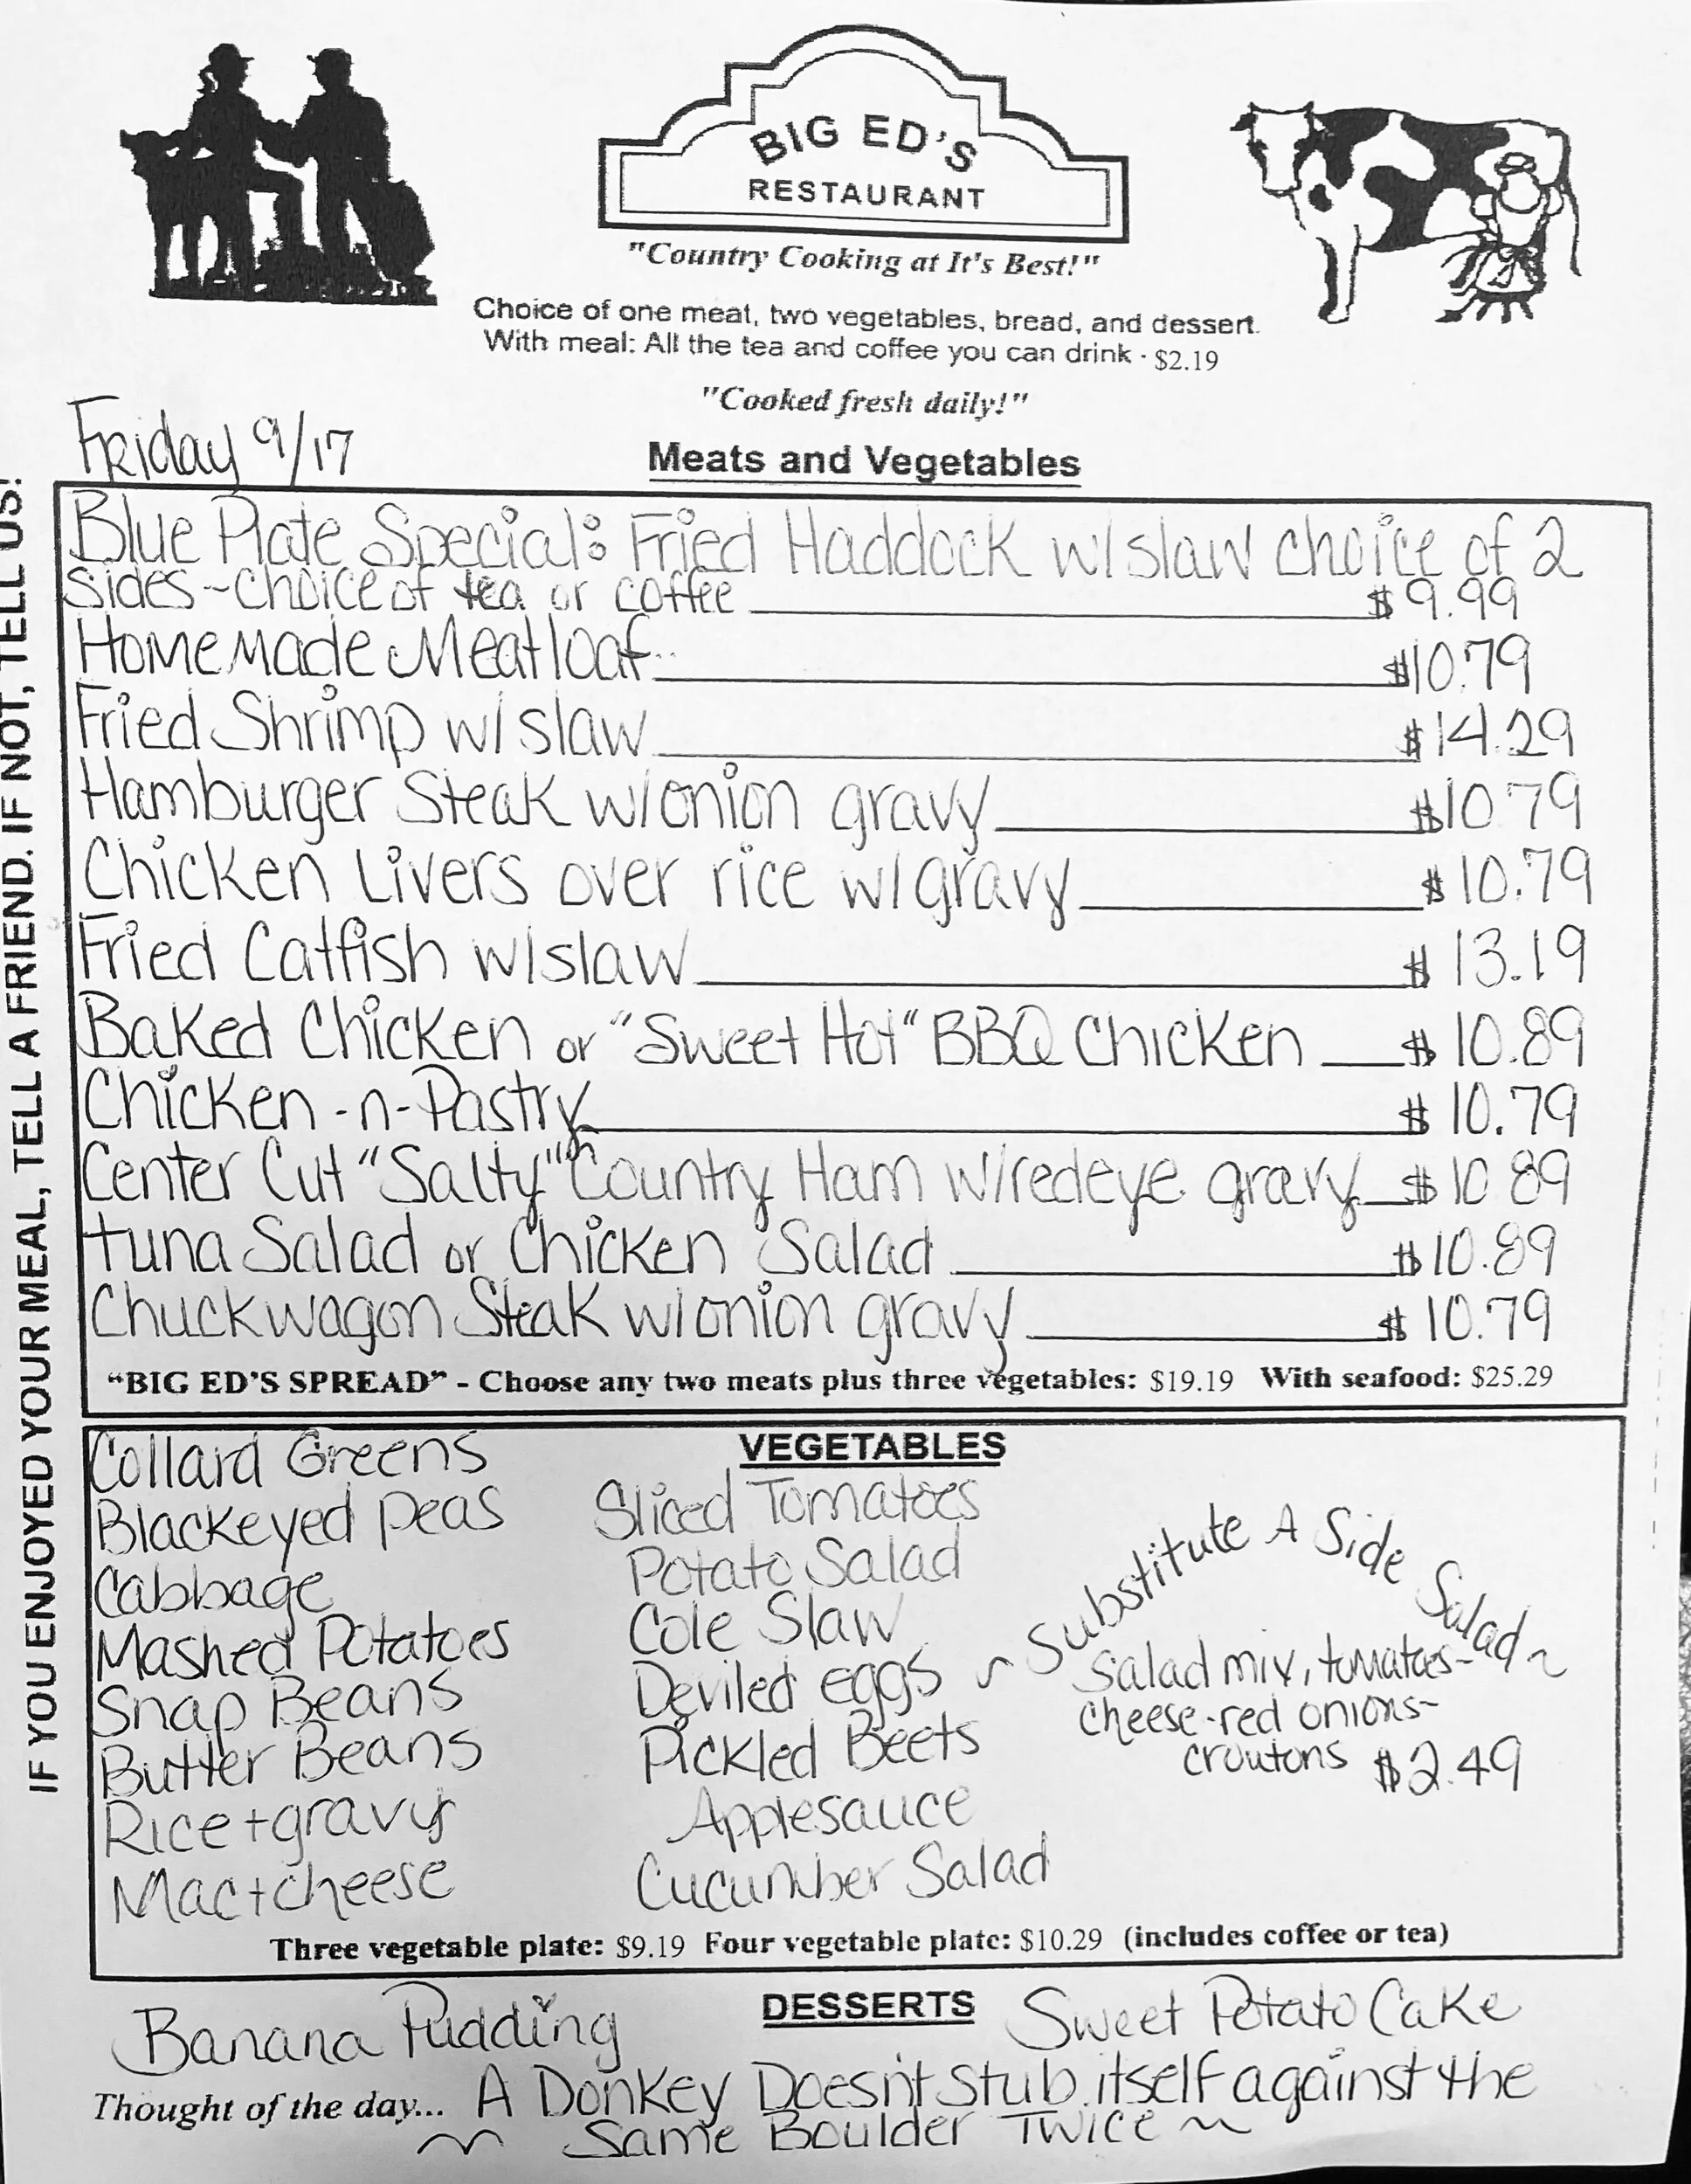 BIG ED'S
RESTAURANT
"Country Cooking at It's Best!"
Choice of one meat, two vegetables, bread, and dessert.
With meal: All the tea and coffee you can drink - $2.19
"Cooked fresh daily!"
Friday 9/17
Meats and Vegetables
Blue Plate Special: Fried Haddock w/slaw choice of 2
sides - choice of tea or coffee $9.99
Homemade Meatloaf $10.79
Fried Shrimp w/slaw $14.29
Hamburger Steak w/onion gravy $10.79
Chicken Livers over rice w/gravy $10.79
Fried Catfish w/slaw $13.19
Baked Chicken or "Sweet Hot" BBQ Chicken $10.89
Chicken-n-Pastry $10.79
Center Cut "Salty" Country Ham w/redeye gravy $10.89
tuna Salad or Chicken Salad $10.89
Chuckwagon Steak w/onion gravy $10.79
"BIG ED'S SPREAD" - Choose any two meats plus three vegetables: $19.19 With seafood: $25.29
VEGETABLES
Collard Greens
Blackeyed peas
Cabbage
Mashed Potatoes
Snap Beans
Butter Beans
Rice + gravy
Mac + cheese
Sliced Tomatoes
Potato Salad
Cole Slaw
Deviled eggs
Pickled Beets
Applesauce
Cucumber Salad
~ Substitute A Side Salad ~
Salad mix, tomatoes-
cheese-red onions-
croutons $2.49
Three vegetable plate: $9.19 Four vegetable plate: $10.29 (includes coffee or tea)
DESSERTS
Banana Pudding
Sweet Potato Cake
Thought of the day... A Donkey Doesn't Stub itself against the
~ Same Boulder Twice ~
IF YOU ENJOYED YOUR MEAL, TELL A FRIEND. IF NOT, TELL US!